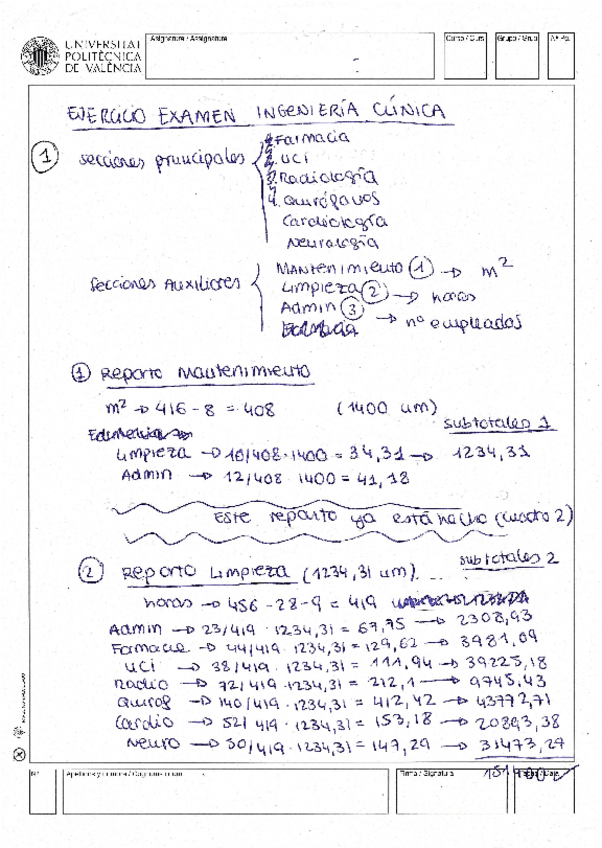 UNIVERSITAT
POLITÈCNICA
DE VALÈNCIA
Asignatura / Assignatura
Curso / Curs
Grupo / Grup
EJERCICIO EXAMEN INGENIERÍA CLÍNICA
1 secciones principales
1. Farmacia
2. UCI
3. Radiología
4. Quirófanos
Cardiología
Neurología
Secciones Auxiliares
MANTENIMIENTO (1) → m²
Limpieza (2) → horas
Admin (3) → nº empleados
1 Reparto Mantenimiento
m² → 416 - 8 = 408 (1400 um)
subtotales 1
Limpieza → 10/408 · 1400 = 34,31 → 1234,31
Admin → 12/408 · 1400 = 41,18
Este reparto ya está hecho (cuadro 2)
2 Reparto Limpieza (1234,31 um)
subtotales 2
horas → 456 - 28 - 9 = 419
Admin → 23/419 · 1234,31 = 67,75 → 2308,93
Farmacia → 44/419 · 1234,31 = 129,62 → 3981,09
UCI → 38/419 · 1234,31 = 111,94 → 39225,18
Radio → 72/419 · 1234,31 = 212,1 → 9745,43
Quirof → 140/419 · 1234,31 = 412,42 → 43772,71
Cardio → 52/419 · 1234,31 = 153,18 → 20893,38
Neuro → 50/419 · 1234,31 = 147,29 → 31473,29
Firma / Signatura